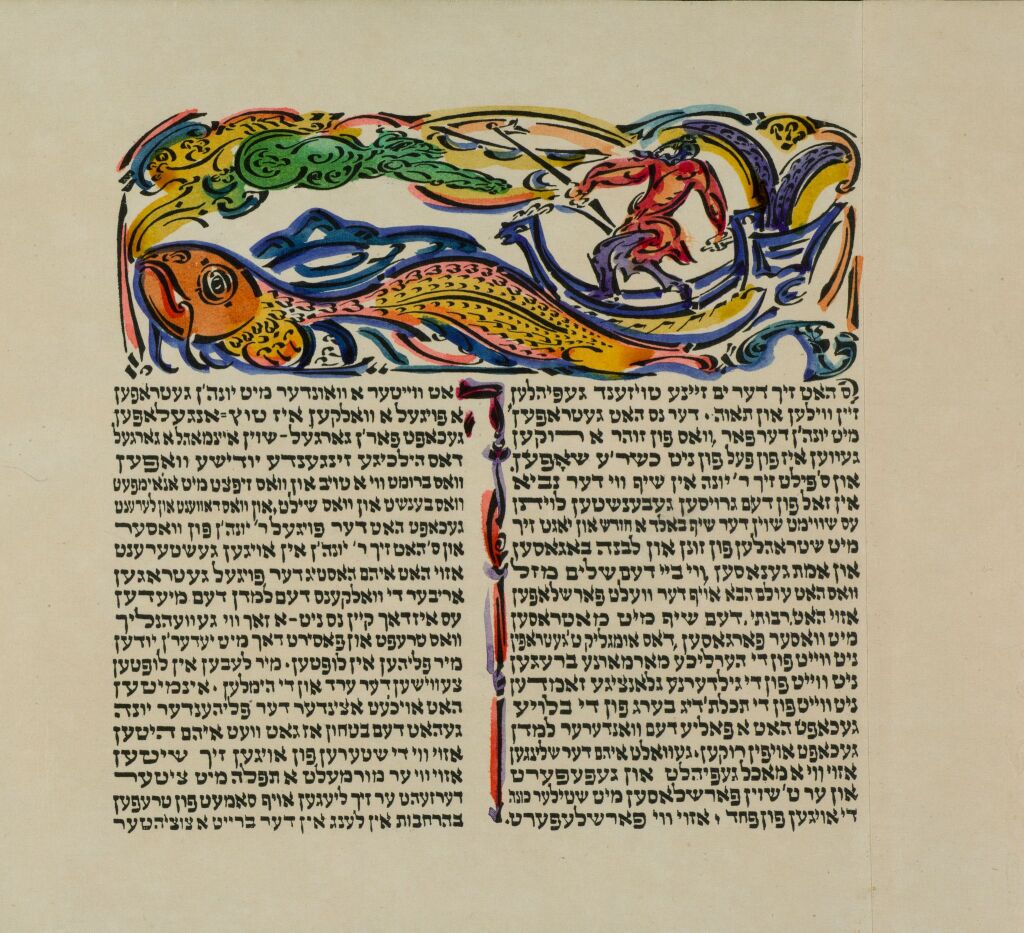 ס האט זיך דער ים זיינע טויזענד געפיהלען
זיין ווילען און תאוה· דער נס האט געטראפען,
מיט יונה'ן דערפאר ,וואס פון זוהר א רוקען
געווען איז פון פעל פון ניט כשר'ע שאפען.
און ס'פילט זיך ר' יונה אין שיף ווי דער נביא
אין זאל פון דעם גרויסען געבענשטען לויתן
עס שווימט שוין דער שיף באלד א חודש און יאגט זיך
מיט שטראהלען פון זונן און לבנה באגאסען
און אמת גענאסען ,ווי ביי דעם שלים מזל
וואס האט עולם הבא אויף דער וועלט פארשלאפען
אזוי האט,רבותי, דעם שיף מיט מאטראסען
מיט וואסער פארגאסען, אומגליק ט'געטראפין
ניט ווייט פון די הערליכע מארמארנע ברעגען
ניט ווייט פון די גילדערנע גלאנציגע זאמדען
ניט ווייט פון די תכלת'דיג בערג פון די בלויע
געכאפט האט א פאליע דעם וואנדערער למדן
געכאפט אויפין רוקען, געוואלט איהם דערשלינגען
אזוי ווי א מאכל געפיהלט און געפעפערט
און ער ט'שוין פארשלאסען מיט שטילער כונה
די אויגען פון פחד , אזוי ווי פארשלעפערט.
אט ווייטער א וואונדער מיט יונה'ן געטראפען
א פויגעל א וואלקען איז טוץ-אנגעלאפען
געכאפט פאר'ן גארגעל-שוין איינמאהל א גארגעל,
דאס הילכיגע זינגענדע יודישע וואפען
וואס ברומט ווי א טויב און,וואס זיפצט מיט אנאימפעט
וואס בענשט און וואס שילט, און וואס דאוונט און לערענט
געכאפט האט דער פויגעל ר' יונה'ן פון וואסער
און ס'האט זיך ר' יונה'ן אין אויגען געשטערענט
אזוי האט איהם האסטיג דער פויגעל געטראגען
אריבער די וואלקענס דעם למדן דעם מיעדען
עס איז דאך קיין נס ניט-א זאך ווי געוועהנליך
וואס טרעפט און פאסירט דאך מיט יעדער'ן, יודען
מיר פליהען אין לופטען· מיר לעבען אין לופטען
צעווישען דער ערד און די הימלען· אינמיטען
האט אויכעט אצינדער דער פליהענדער יונה
געהאט דעם בטחון אז גאט וועט איהם היטען
אזוי ווי די שטערען פון אויגען זיך שיטען
אזוי ווי ער מורמעלט א תפלה מיט ציטער
דערזעהט ער זיך ליעגען אויף סאמעט פון טרעפען
בהרחבות אין לענג אין דער ברייט א צוציהטער